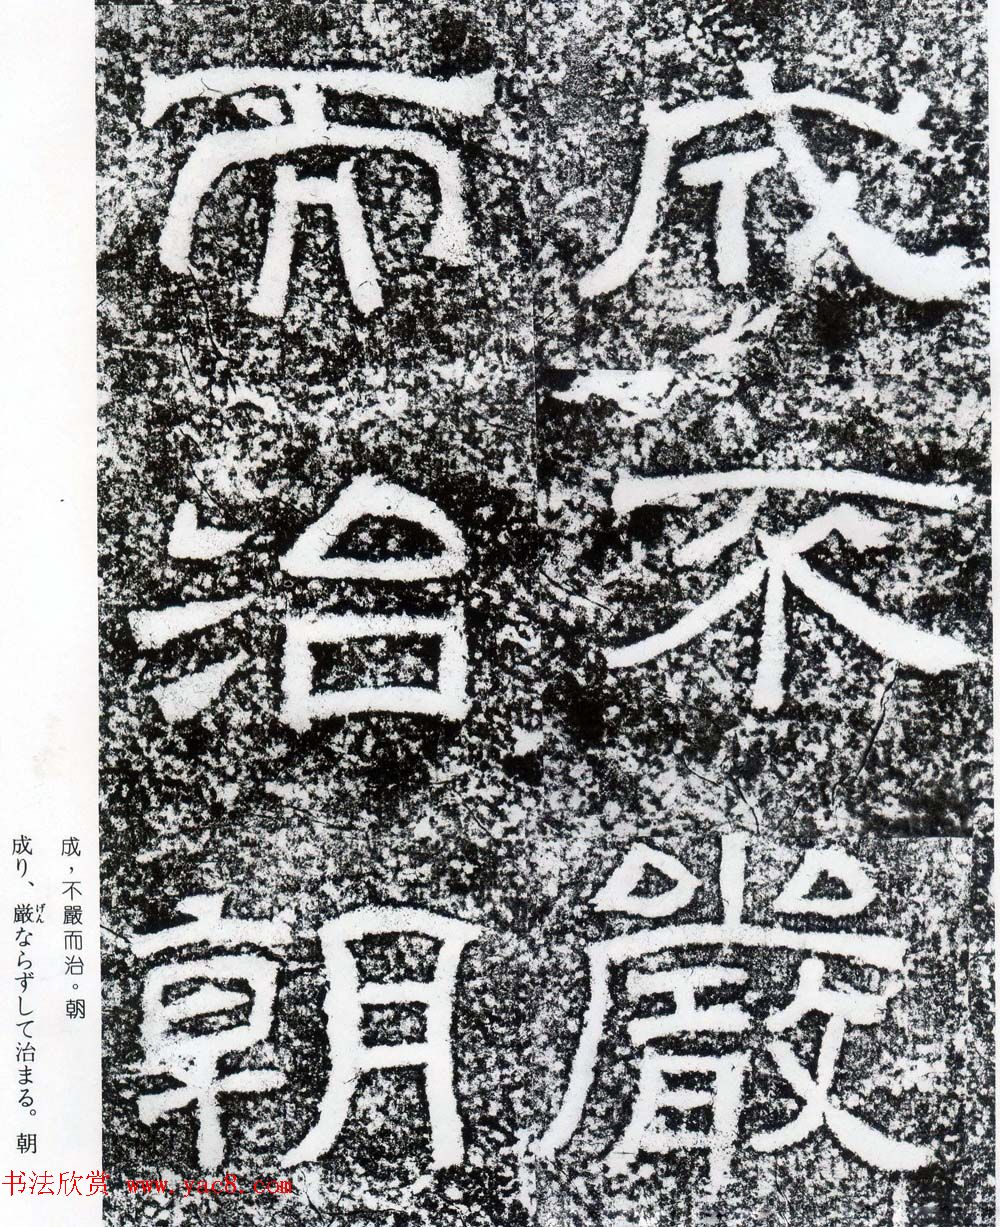 成不嚴
而治朝
成，不嚴而治。朝
成り、厳ならずして治まる。朝
げん
书法欣赏 www.yac8.com